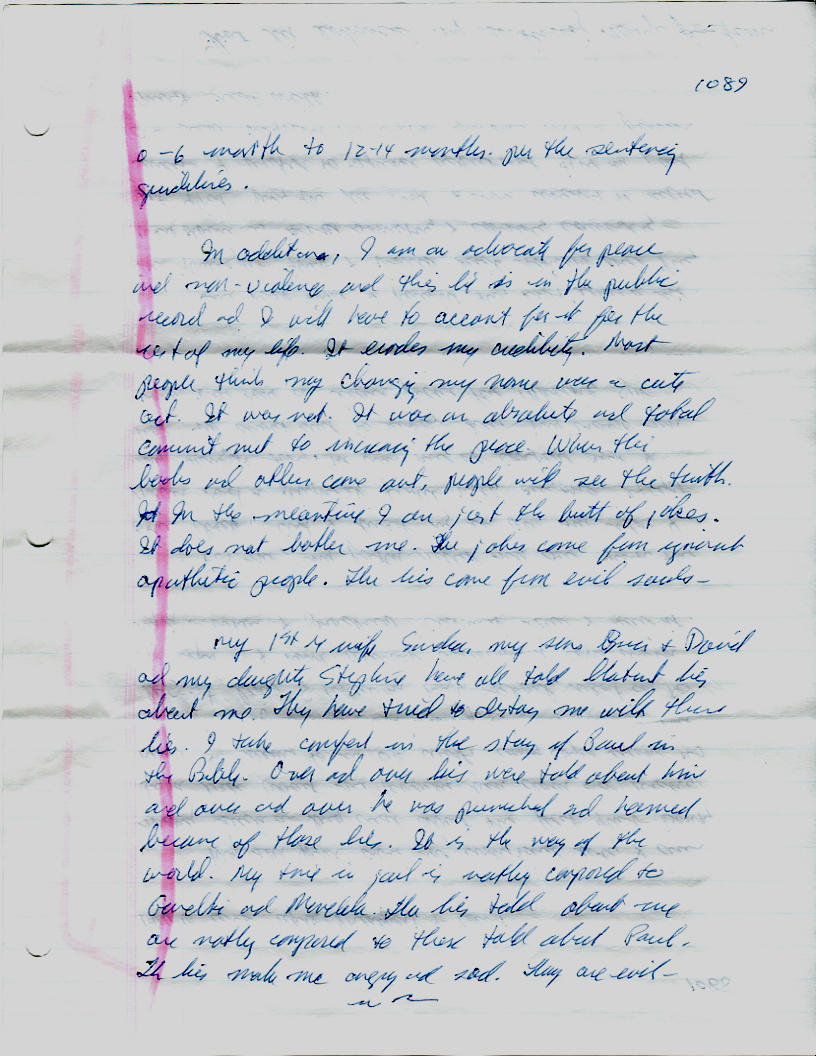 1089
0-6 month to 12-14 months. per the sentencing
guidelines.
In addition, I am an advocate for peace
and non-violence and this lie is in the public
record ad I will have to account for it for the
rest of my life. It erodes my credibility. Most
people think my changing my name was a cute
act. It was not. It was an absolute and total
commitment to increasing the peace. When this
books ad others come out, people will see the truth.
In the meantime I am just the butt of jokes.
It does not bother me. The jokes come from ignorant
apathetic people. The lies come from evil souls-
My 1st wife my sons + David
ad my daughter Stephanie have all told blatant lies
about me. They have tried to destroy me with these
lies. I take comfort in the story of Paul in
the Bible. Over ad over lies were told about him
and over ad over he was punished ad harmed
because of those lies. It is the way of the
world. My time in jail is nothing compared to
ad Mandela. The lies told about me
are nothing compared to those told about Paul.
The lies make me angry ad sad. They are evil-